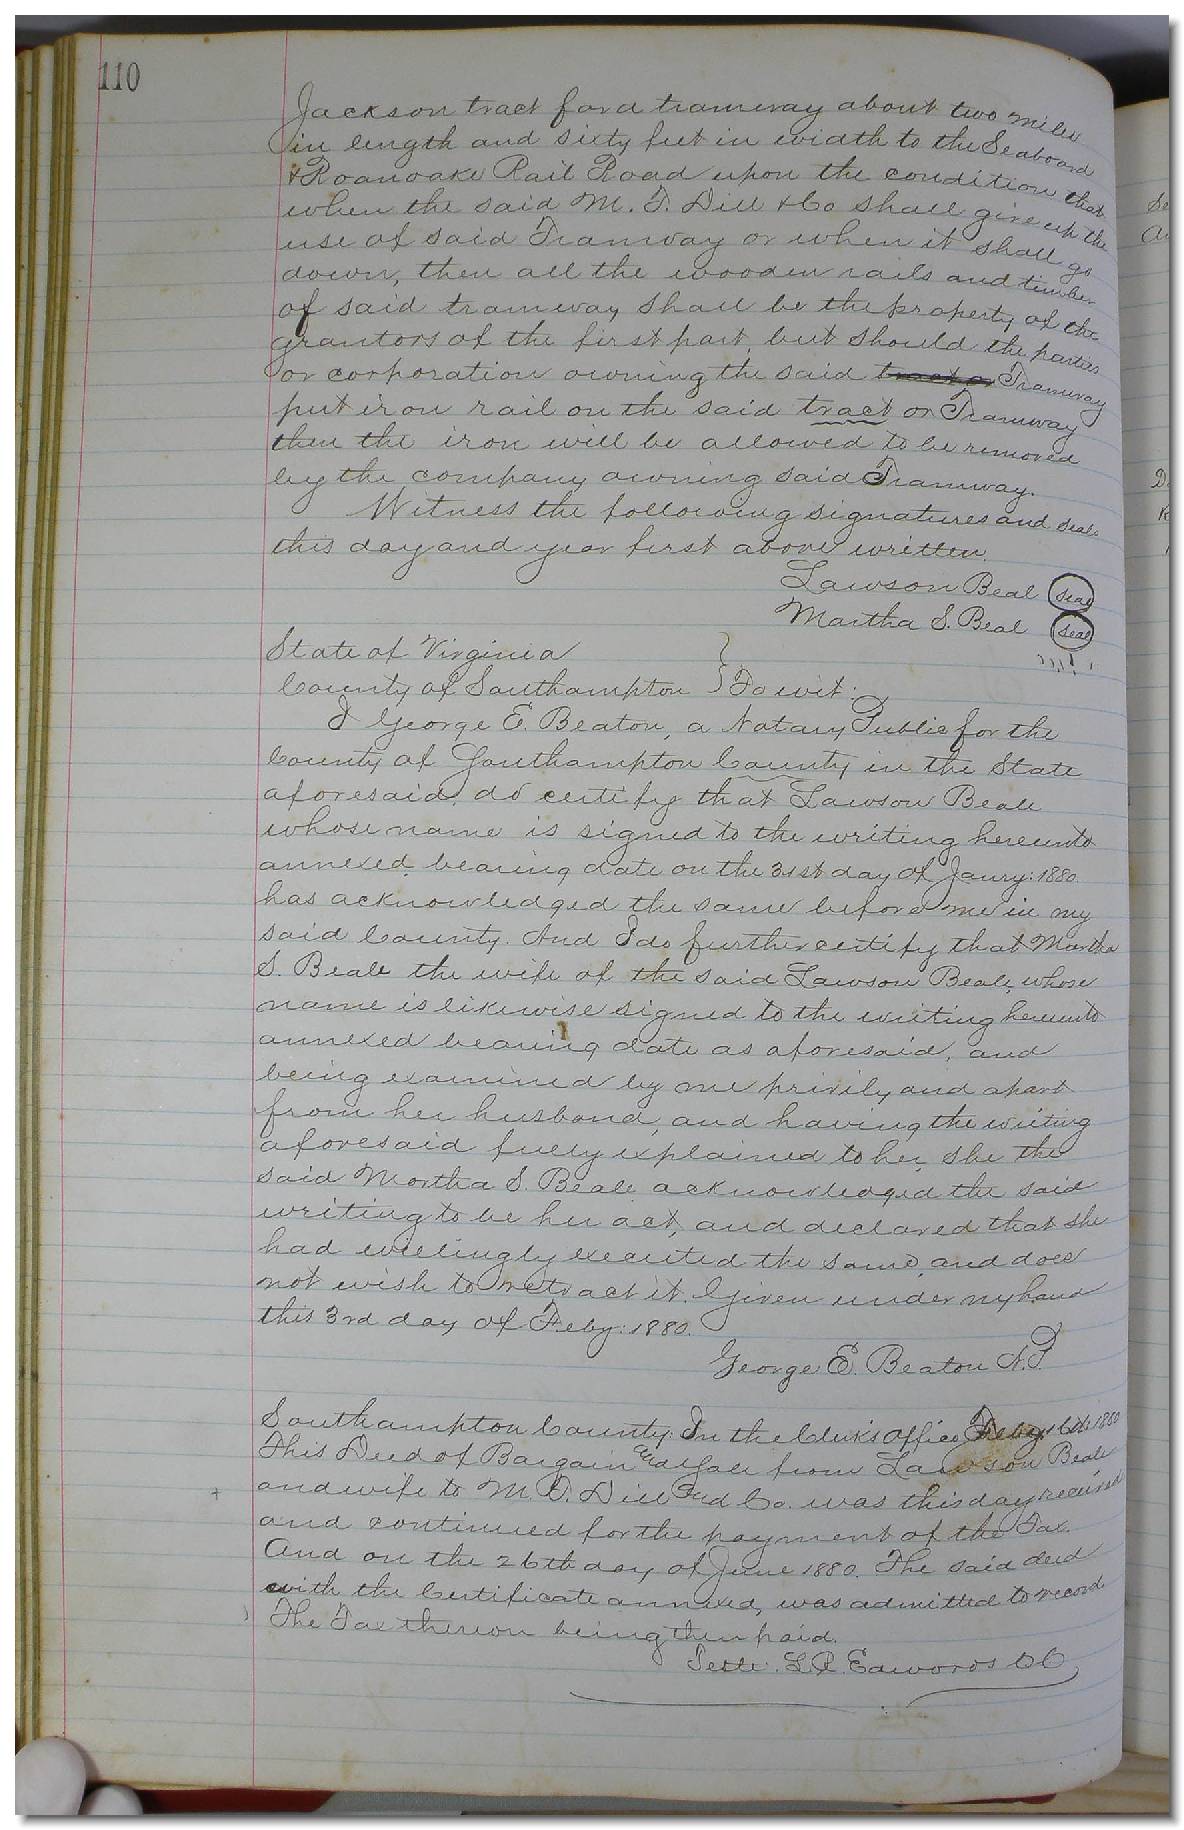 110
Jackson tract for a tramway about two miles
in length and sixty feet in width to the Seaboard
& Roanoake Rail Road upon the condition that
when the said M. T. Dill & Co shall give up the
use of said Tramway or when it shall go
down, then all the wooden rails and timber
of said tramway shall be the property of the
grantors of the first part, but should the parties
or corporation owning the said tract or Tramway
put iron rail on the said tract or Tramway
then the iron will be allowed to be removed
by the company owning said Tramway.
Witness the following signatures and seals
this day and year first above written.
Lawson Beal Seal
Martha S. Beal Seal
State of Virginia
County of Southampton } To wit:
I George E. Beaton, a Notary Public for the
County of Southampton County in the State
aforesaid, do certify that Lawson Beale
whose name is signed to the writing hereunto
annexed, bearing date on the 31st day of Jaury: 1880.
has acknowledged the same before me in my
said County. And I do further certify that Martha
S. Beale the wife of the said Lawson Beale, whose
name is likewise signed to the writing hereunto
annexed bearing date as aforesaid, and
being examined by me privily and apart
from her husband, and having the writing
aforesaid fully explained to her, she the
said Martha S. Beale acknowledged the said
writing to be her act, and declared that she
had willingly executed the same, and does
not wish to retract it. Given under my hand
this 3rd day of Feby: 1880.
George E. Beaton N.P.
Southampton County: In the Clerks Office Feby 6th: 1880
This Deed of Bargain and Sale from Lawson Beale
and wife to M. T. Dill and Co. was this day received
and continued for the payment of the Tax.
And on the 26th day of June 1880. The said deed
with the Certificate annexed, was admitted to record
The Tax thereon being then paid.
Teste: L. R. Edwards DC